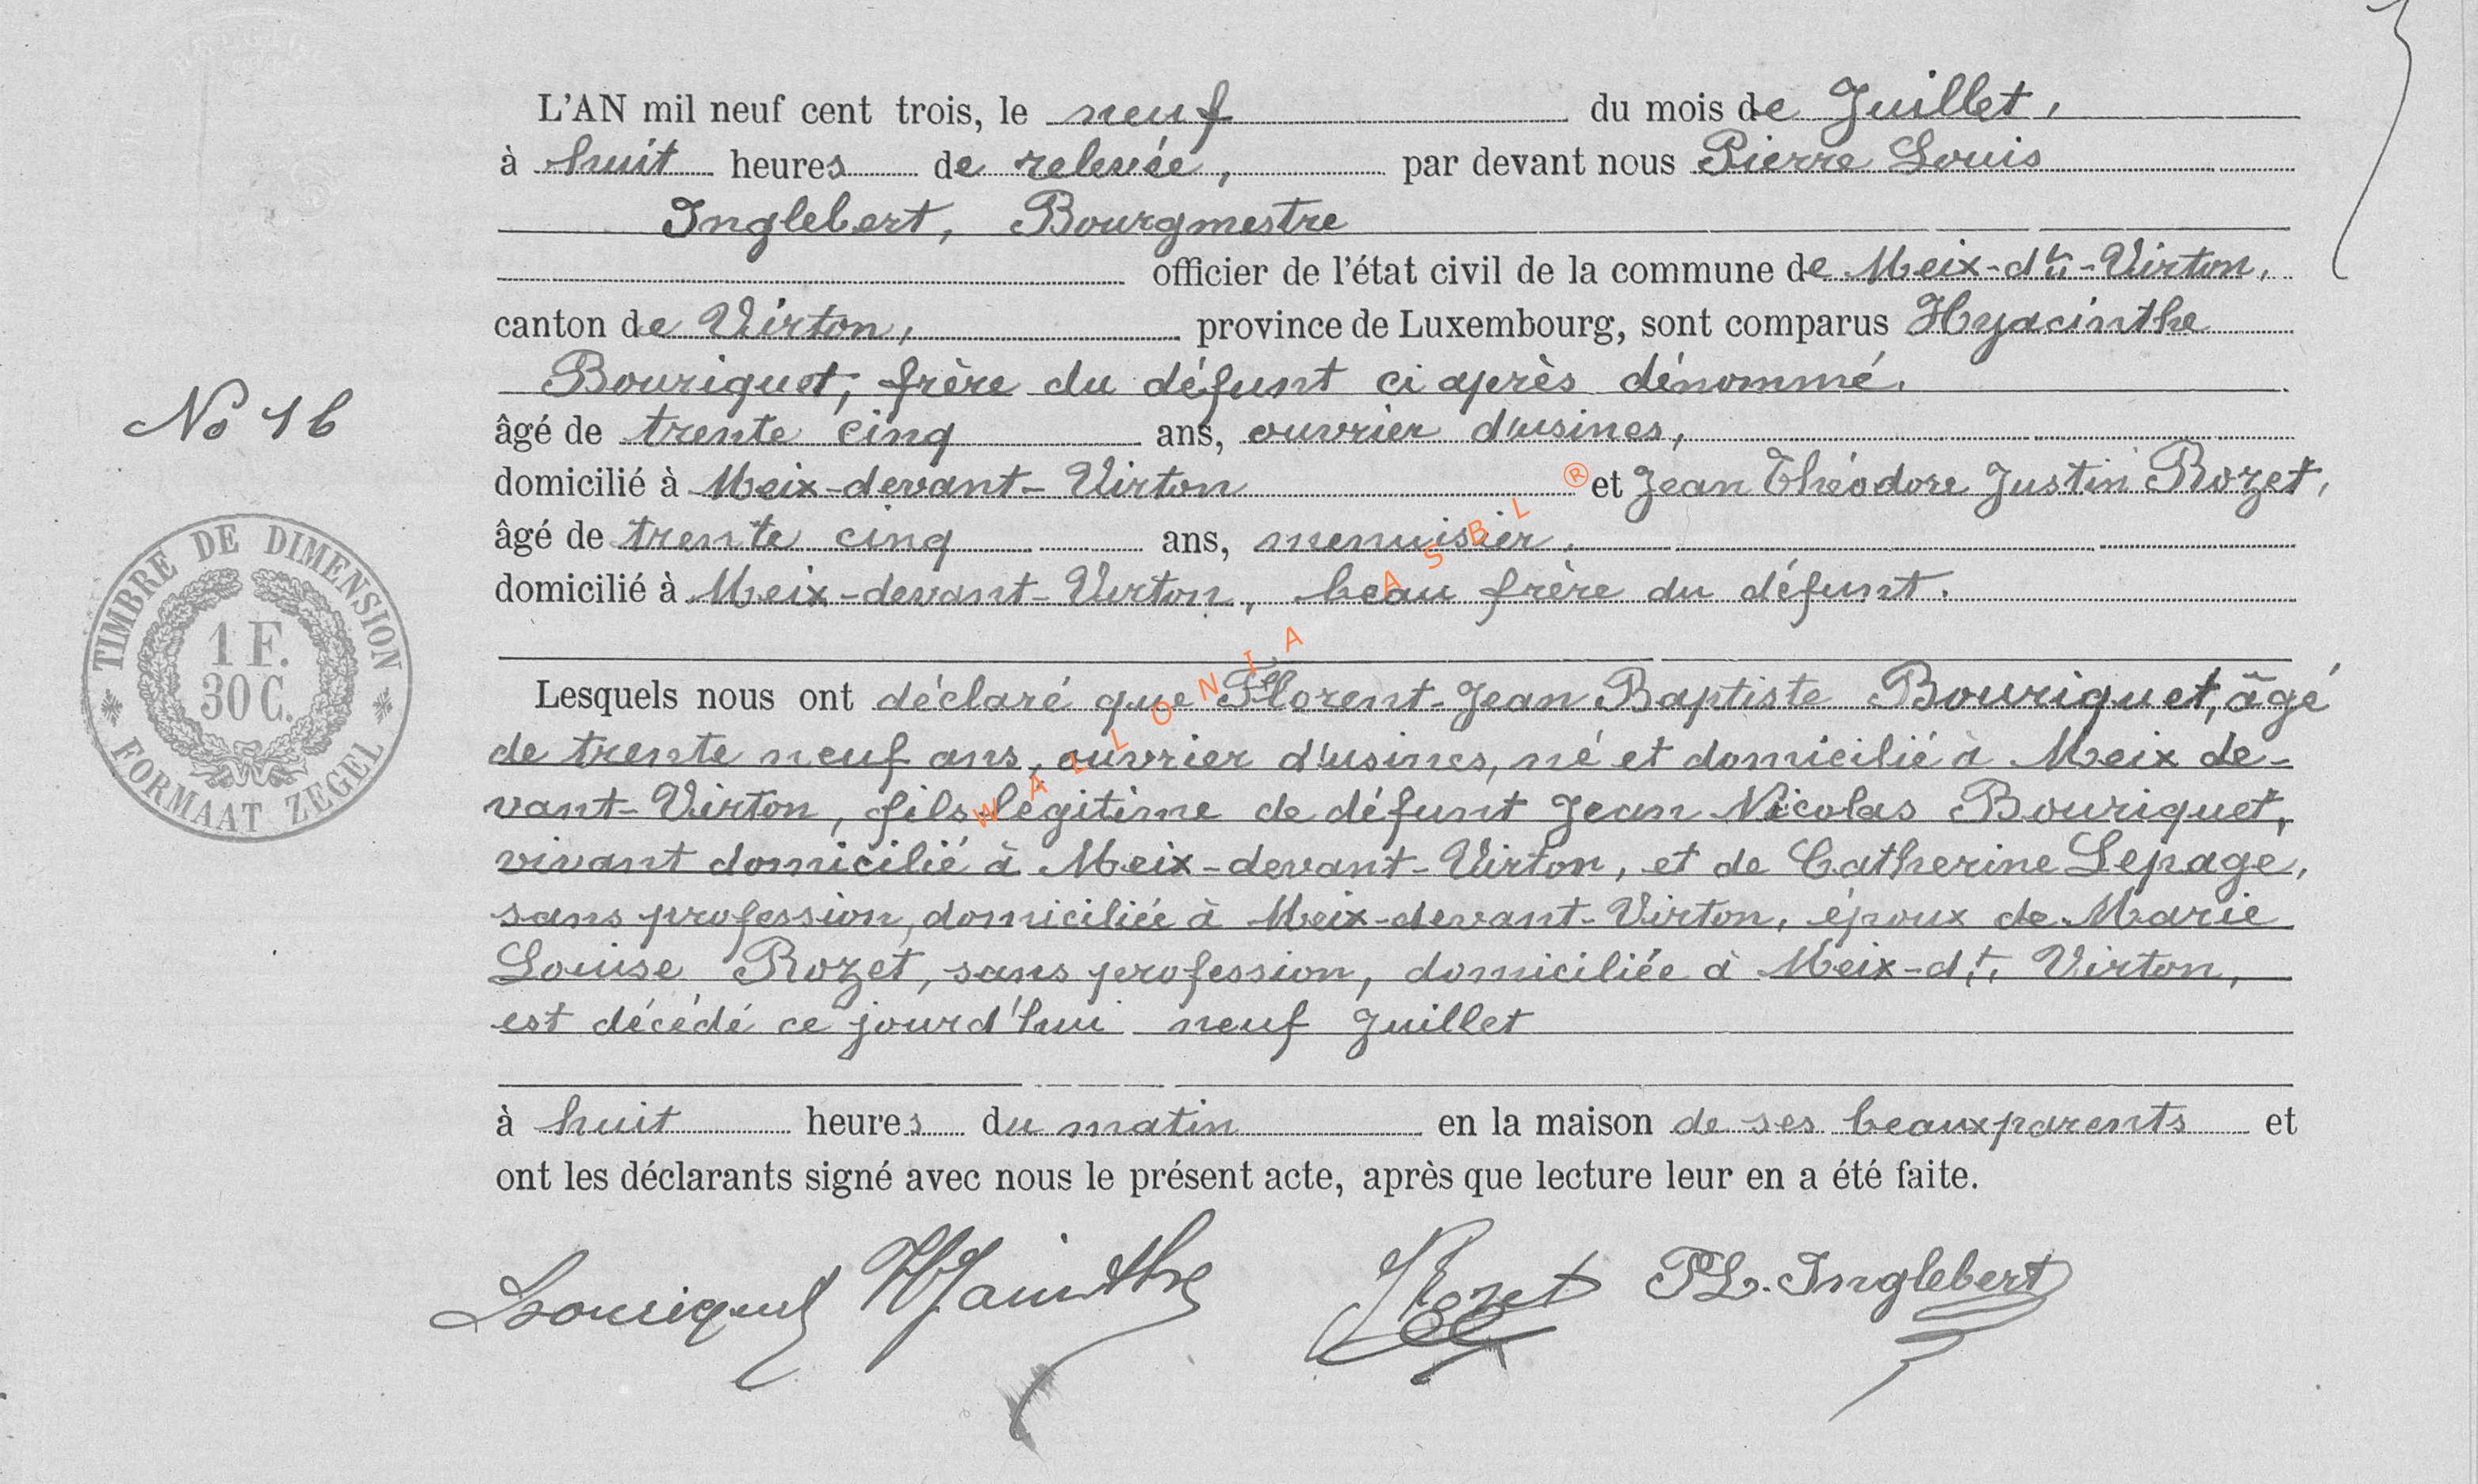 L'AN mil neuf cent trois, le neuf du mois de Juillet,
à huit heures de relevée, par devant nous Pierre Louis
Inglebert, Bourgmestre
officier de l'état civil de la commune de Meix-dt-Virton,
canton de Virton, province de Luxembourg, sont comparus Hyacinthe
Bouriquet, frère du défunt ci après dénommé.
No 16
âgé de trente cinq ans, ouvrier d'usines,
domicilié à Meix-devant-Virton et Jean Théodore Justin Rozet,
âgé de trente cinq ans, menuisier.
domicilié à Meix-devant-Virton, beau frère du défunt.
TIMBRE DE DIMENSION
1 F.
30 C.
FORMAAT ZEGEL
WALLONIA ASBL ®
Lesquels nous ont déclaré que Florent-Jean Baptiste Bouriquet, âgé
de trente neuf ans, ouvrier d'usines, né et domicilié à Meix de-
vant-Virton, fils légitime de défunt Jean Nicolas Bouriquet,
vivant domicilié à Meix-devant-Virton, et de Catherine Lepage,
sans profession, domiciliée à Meix-devant-Virton, époux de Marie
Louise Rozet, sans profession, domiciliée à Meix-dt. Virton,
est décédé ce jourd'hui neuf Juillet
à huit heures du matin en la maison de ses beauxparents et
ont les déclarants signé avec nous le présent acte, après que lecture leur en a été faite.
Bouriquet Hyacinthe Rozet PL. Inglebert